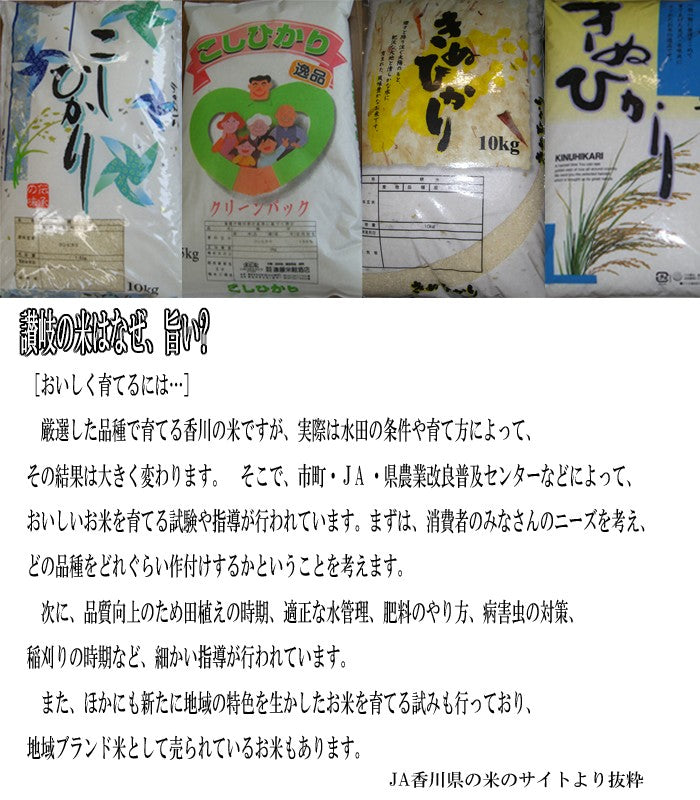 こしひかり
伝承の味
10kg
こしひかり
逸品
クリーンパック
5kg
こしひかり
きぬひかり
10kg
きぬひかり
きぬひかり
KINUHIKARI
讃岐の米はなぜ、旨い?
［おいしく育てるには…］
厳選した品種で育てる香川の米ですが、実際は水田の条件や育て方によって、
その結果は大きく変わります。　そこで、市町・ＪＡ・県農業改良普及センターなどによって、
おいしいお米を育てる試験や指導が行われています。まずは、消費者のみなさんのニーズを考え、
どの品種をどれぐらい作付けするかということを考えます。
次に、品質向上のため田植えの時期、適正な水管理、肥料のやり方、病害虫の対策、
稲刈りの時期など、細かい指導が行われています。
また、ほかにも新たに地域の特色を生かしたお米を育てる試みも行っており、
地域ブランド米として売られているお米もあります。
JA香川県の米のサイトより抜粋